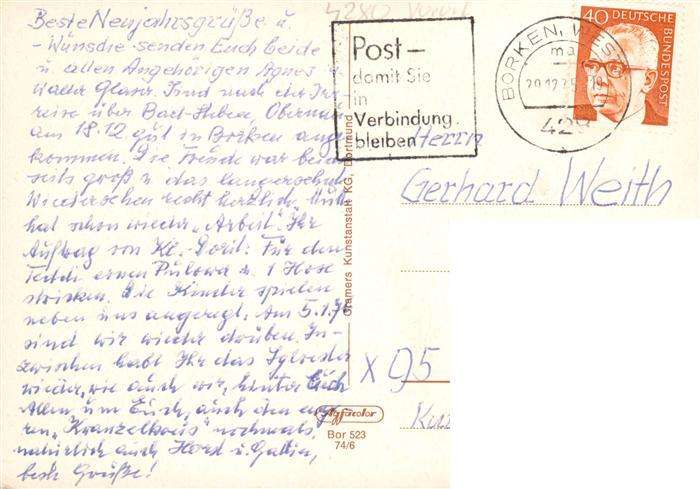 Beste Neujahrsgrüße u.
-Wünsche senden Euch beide
u. allen Angehörigen Agnes u.
Walter Glaser. Sind nach der Irr-
reise über Bad-Steben,
am 18.12 gut in Borken ange-
kommen. Die Freude war beider-
seits groß u. das langersehnte
Wiedersehen recht herzlich. Mutti
hat schon wieder „Arbeit". Ihr
Auftrag von Kl. Dorit: Für den
Teddi einen Pulowa u. 1 Hose
stricken. Die Kinder spielen
neben uns angeregt. Am 5.1.76
sind wir wieder drüben. In-
zwischen habt Ihr das Sylvester
wieder, wie auch wir, hinter Euch
Allen, um Euch, auch den
"Kranzelkreis" nochmals,
natürlich auch Horst u. Gattin,
beste Grüße!
4280
Post –
damit Sie
in
Verbindung
bleiben
BORKEN, WESTF
ma
29.12.75
428
40 DEUTSCHE
BUNDESPOST
Herrn
Gerhard Weith
X 95
Cramers Kunstanstalt KG, Dortmund
Agfacolor
Bor 523
74/6